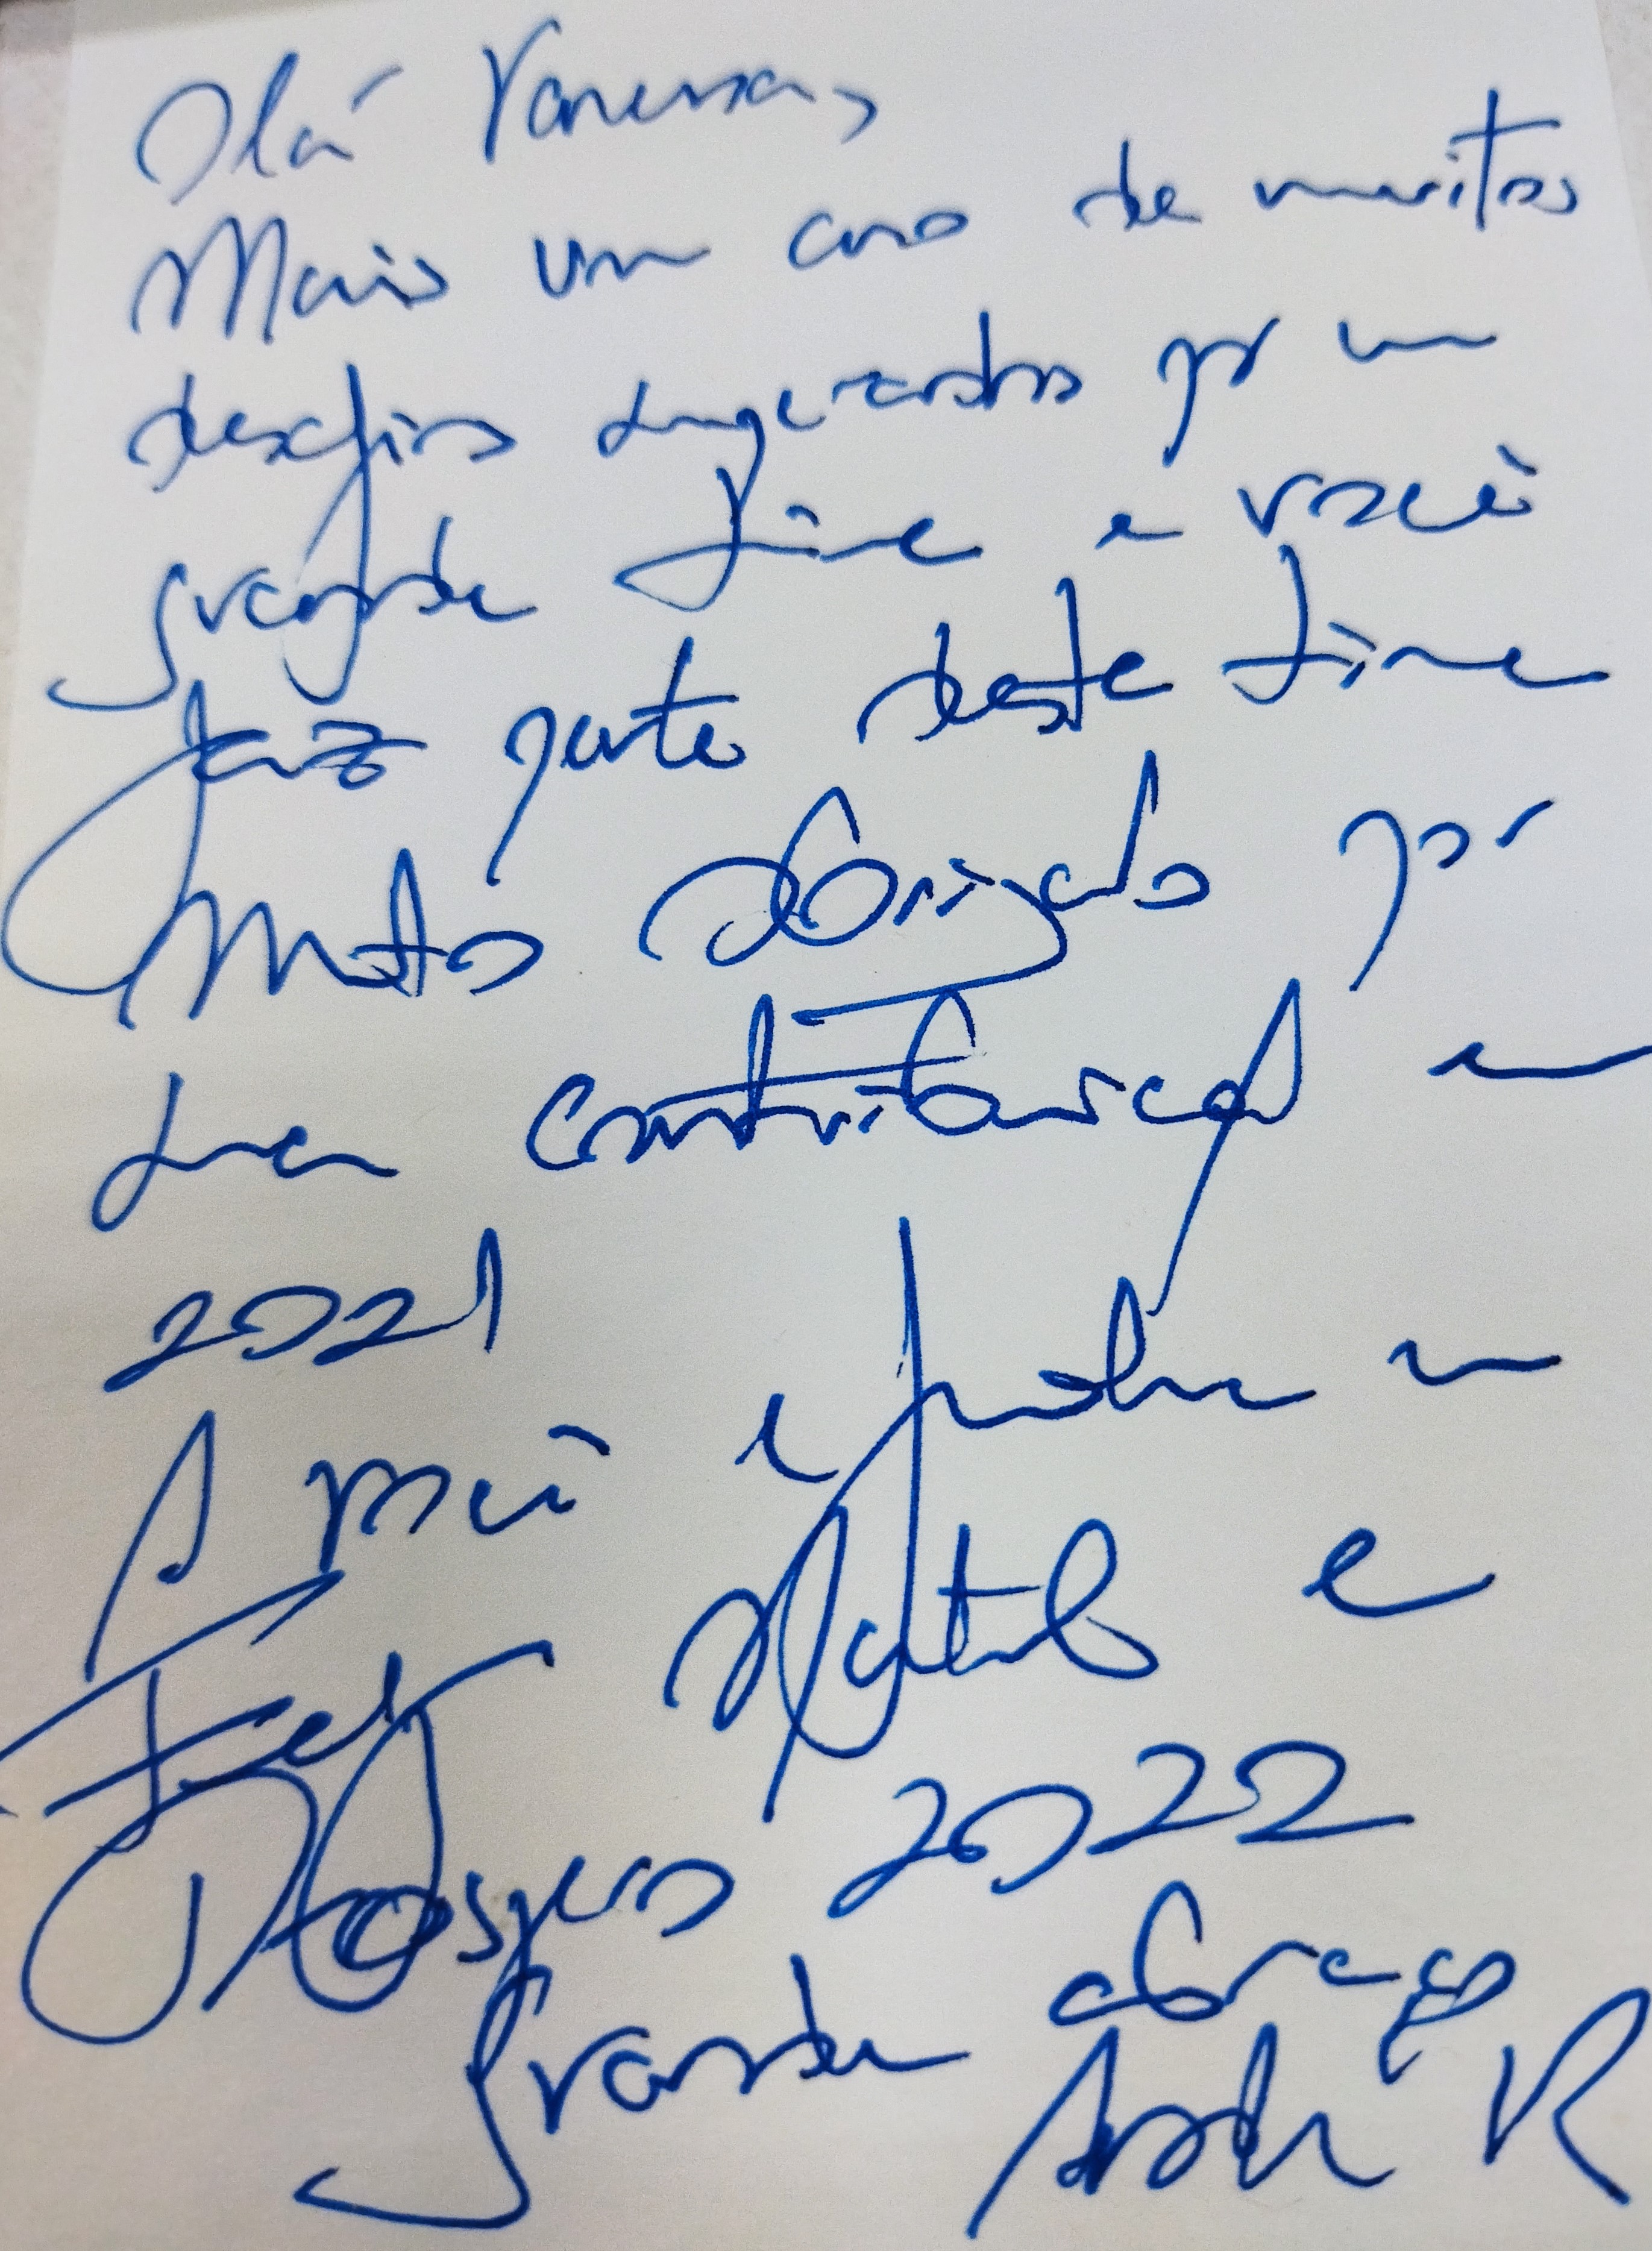 Olá Vanessa,
Mais um ano de muitos
desafios superados por um
grande time e você
faz parte deste time
Muito obrigado por
sua contribuição em
2021
A você e família um
Feliz Natal e
Próspero 2022
Grande abraço
André R